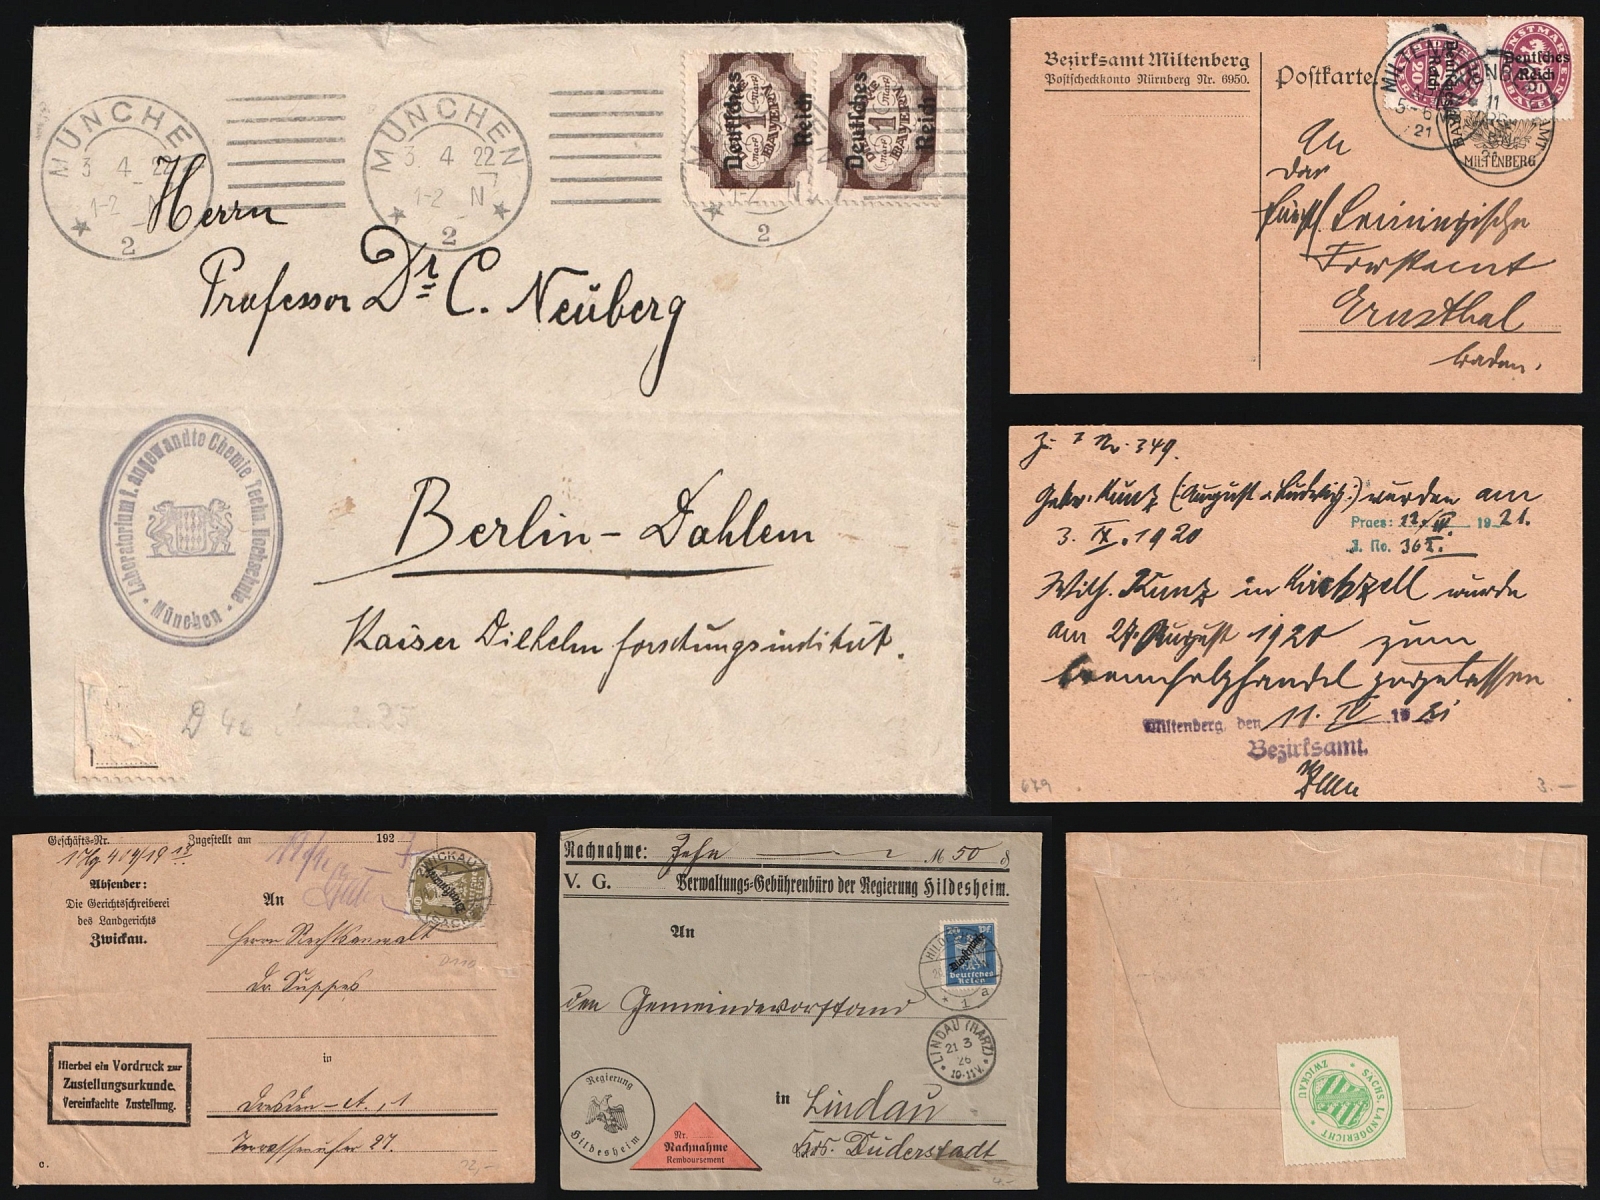 MÜNCHEN
3. 4. 22
1-2 N
2
MÜNCHEN
3. 4. 22
1-2 N
2
Deutsches Reich
1 Mark
BAYERN
Deutsches Reich
1 Mark
BAYERN
1-2 N
2
Herrn
Professor Dr. C. Neuberg
Berlin-Dahlem
Kaiser Wilhelm forschungsinstitut.
Laboratorium f. angewandte Chemie Techn. Hochschule
München
Bezirksamt Miltenberg
Postscheckkonto Nürnberg Nr. 6950.
Postkarte
Deutsches Reich
20
Deutsches Reich
MILTENBERG
5-6
21
MILTENBERG
An
das
Fürstl. Leiningische
Forstamt
Ernsthal
Baden.
Zu I Nr. 349.
Gebr. Kunz (August u. Ludwig.) wurden am
3. IX. 1920
Praes: 12/IV 1921.
J. No.
Wilh. Kunz in Kirchzell wurde
am 24. August 1920 zum
Brennholzhandel zugelassen
Miltenberg, den 11. IV. 1921
Bezirksamt.
679
3.–
Geschäfts-Nr.
Zugestellt am
192
Absender:
Die Gerichtsschreiberei
des Landgerichts
Zwickau.
An
ZWICKAU
(SACHSEN)
10
Herrn Rechtsanwalt
Dr. Suppes
in
Dresden-A., 1
Hierbei ein Vordruck zur
Zustellungsurkunde.
Vereinfachte Zustellung.
c.
12,-
Nachnahme: Zehn M 50 ₰
V. G. Verwaltungs-Gebührenbüro der Regierung Hildesheim.
An
20 Pf
Deutsches Reich
den Gemeindevorstand
LINDAU (HARZ)
21 3
26
10-11 V.
in Lindau
Krs. Duderstadt
Regierung
Hildesheim
Nr.
Nachnahme
Remboursement
4.-
SÄCHS. LANDGERICHT
ZWICKAU